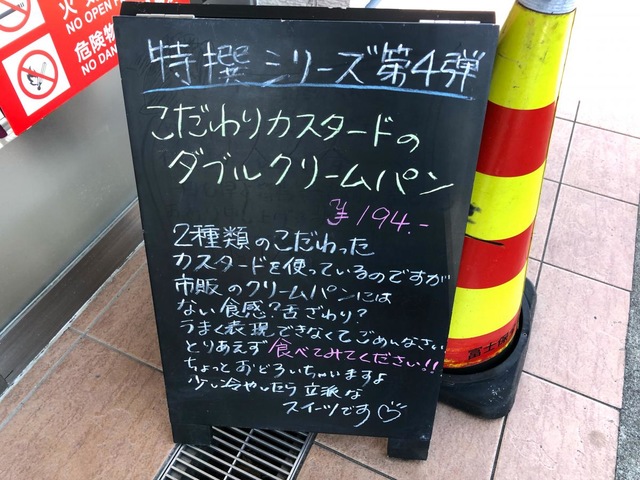 火
NO OPEN
危険物
NO DAN
特撰シリーズ第4弾
こだわりカスタードの
ダブルクリームパン
¥194.-
2種類のこだわった
カスタードを使っているのですが
市販のクリームパンには
ない食感?舌ざわり?
うまく表現できなくてごめんなさい
とりあえず食べてみてください!!
ちょっとおどろいちゃいますよ
少し冷やしたら立派な
スイーツです♡